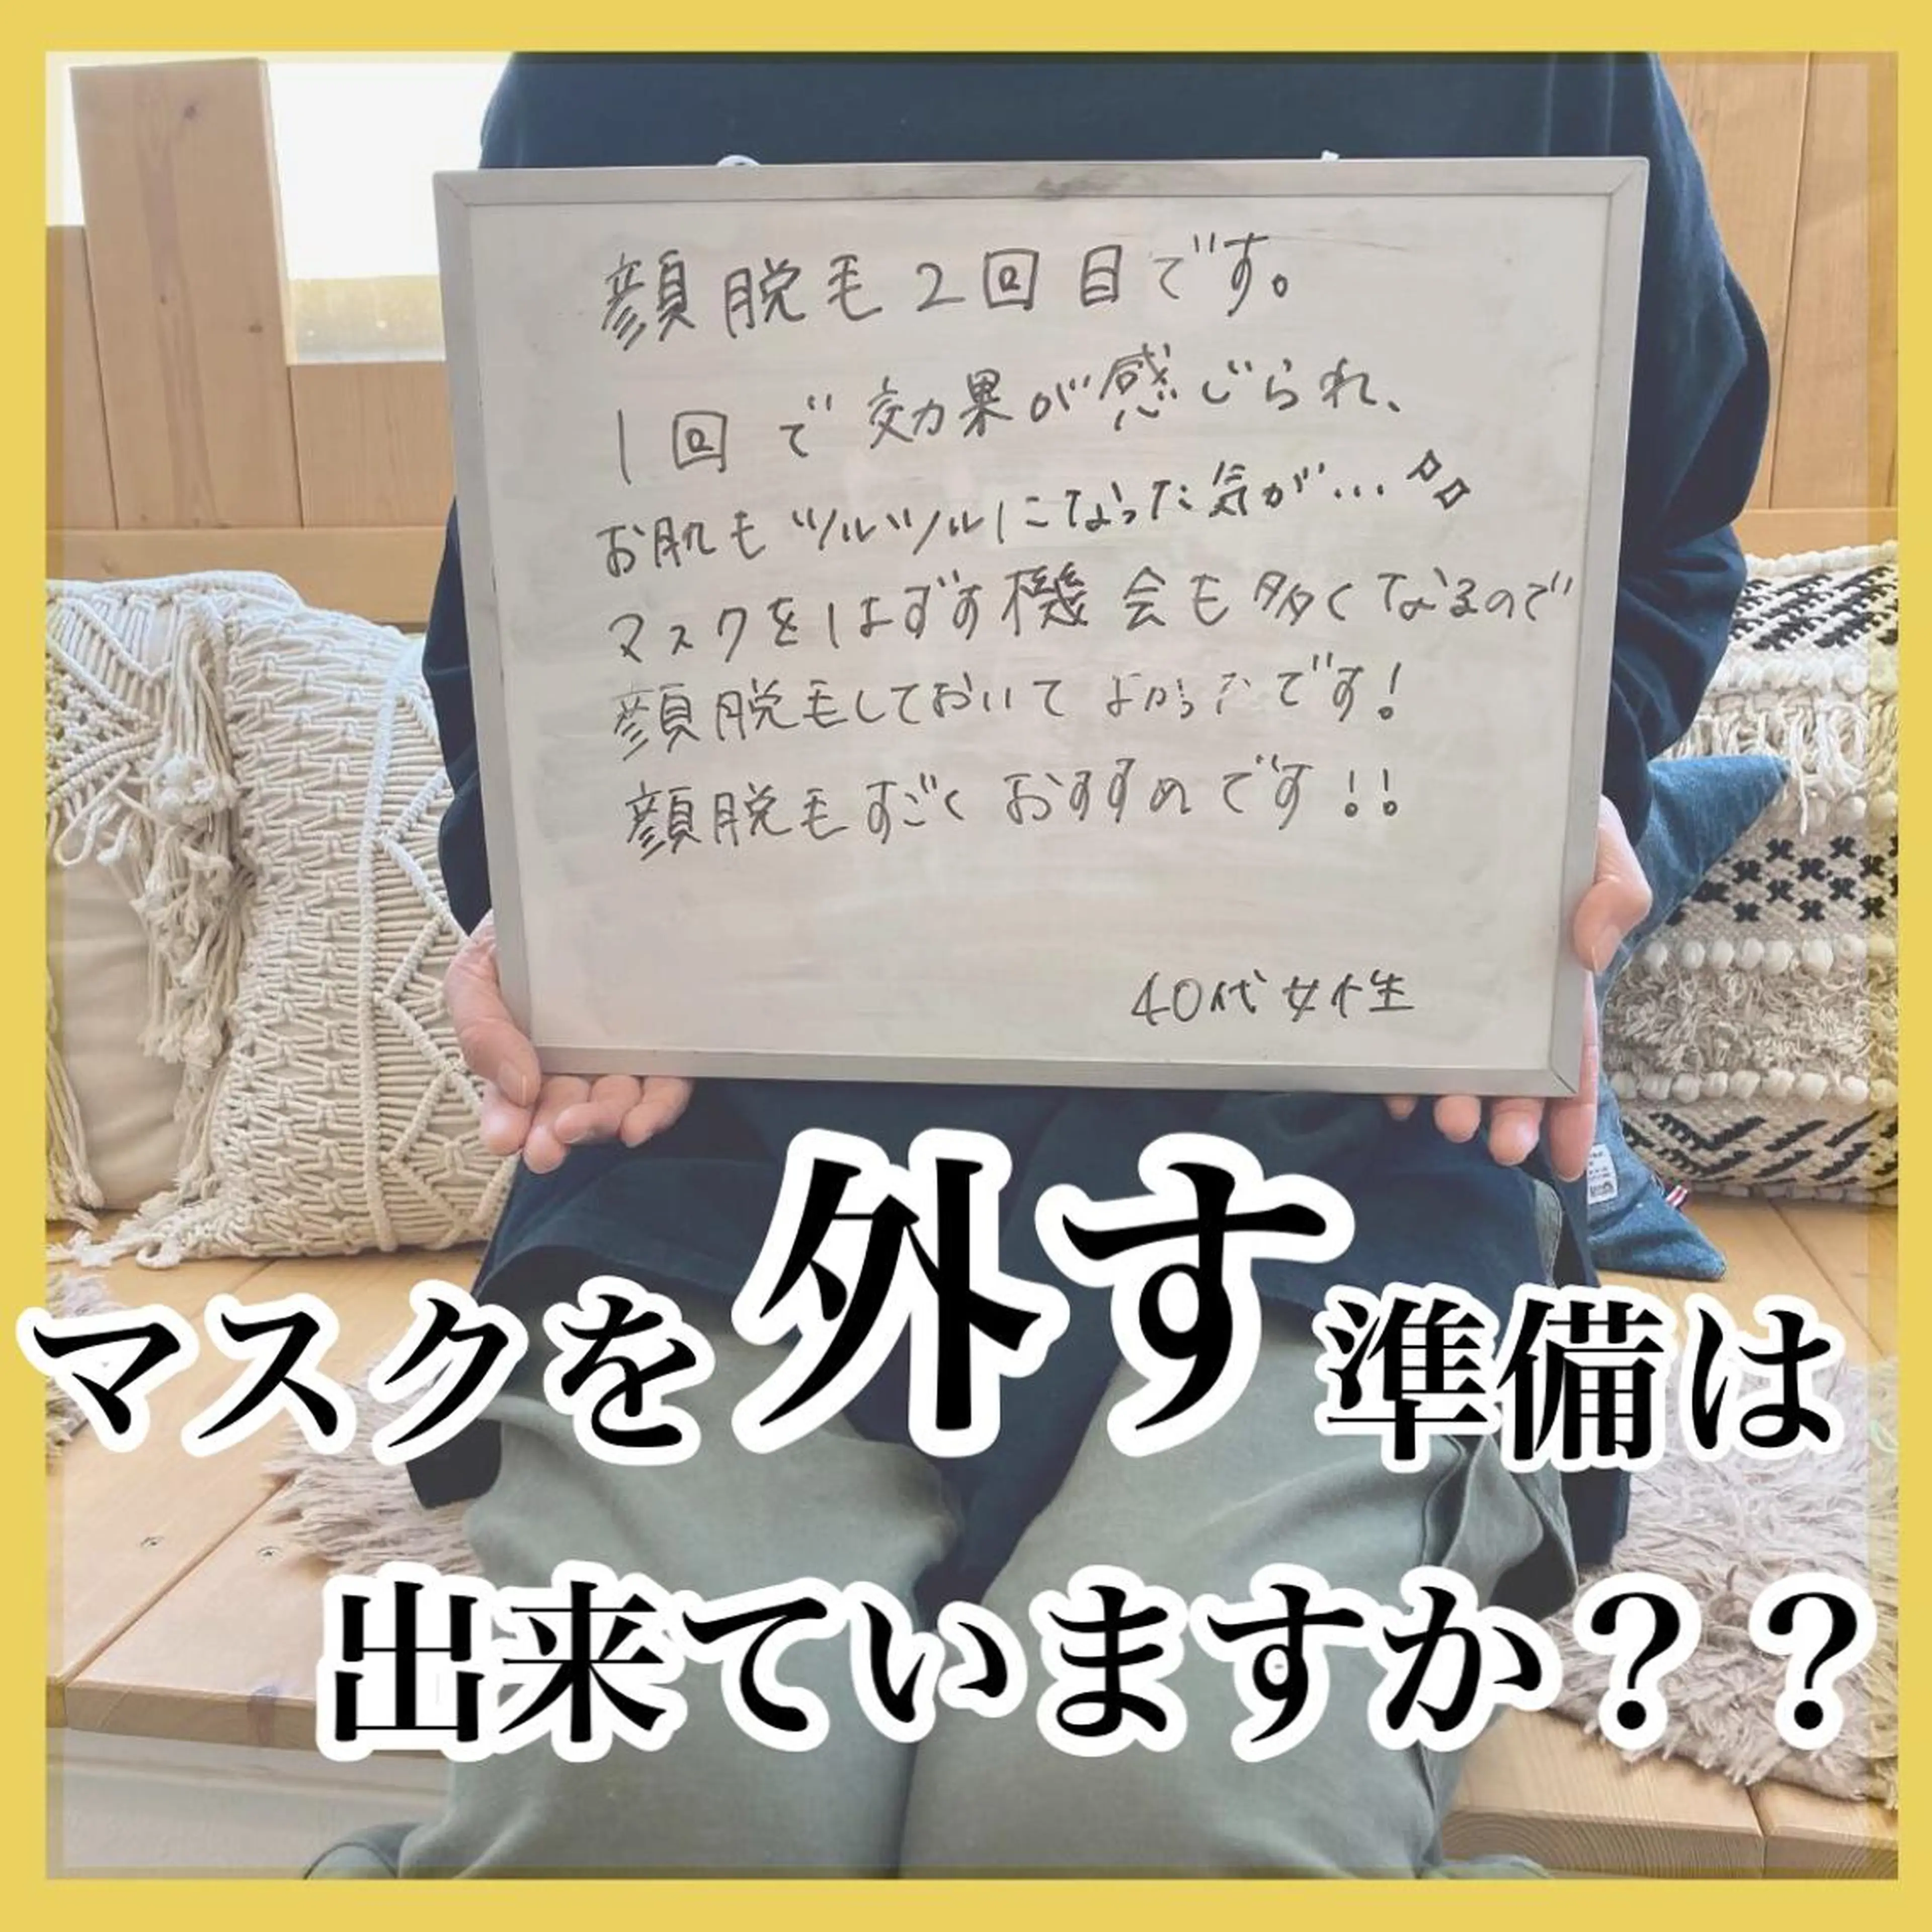 顔脱毛2回目です。
1回で効果が感じられ、
お肌もツルツルになった気が…
マスクをはずす機会も多くなるので
顔脱毛しておいてよかったです!
顔脱毛すごくおすすめです!!
40代女性
マスクを外す準備は
出来ていますか??